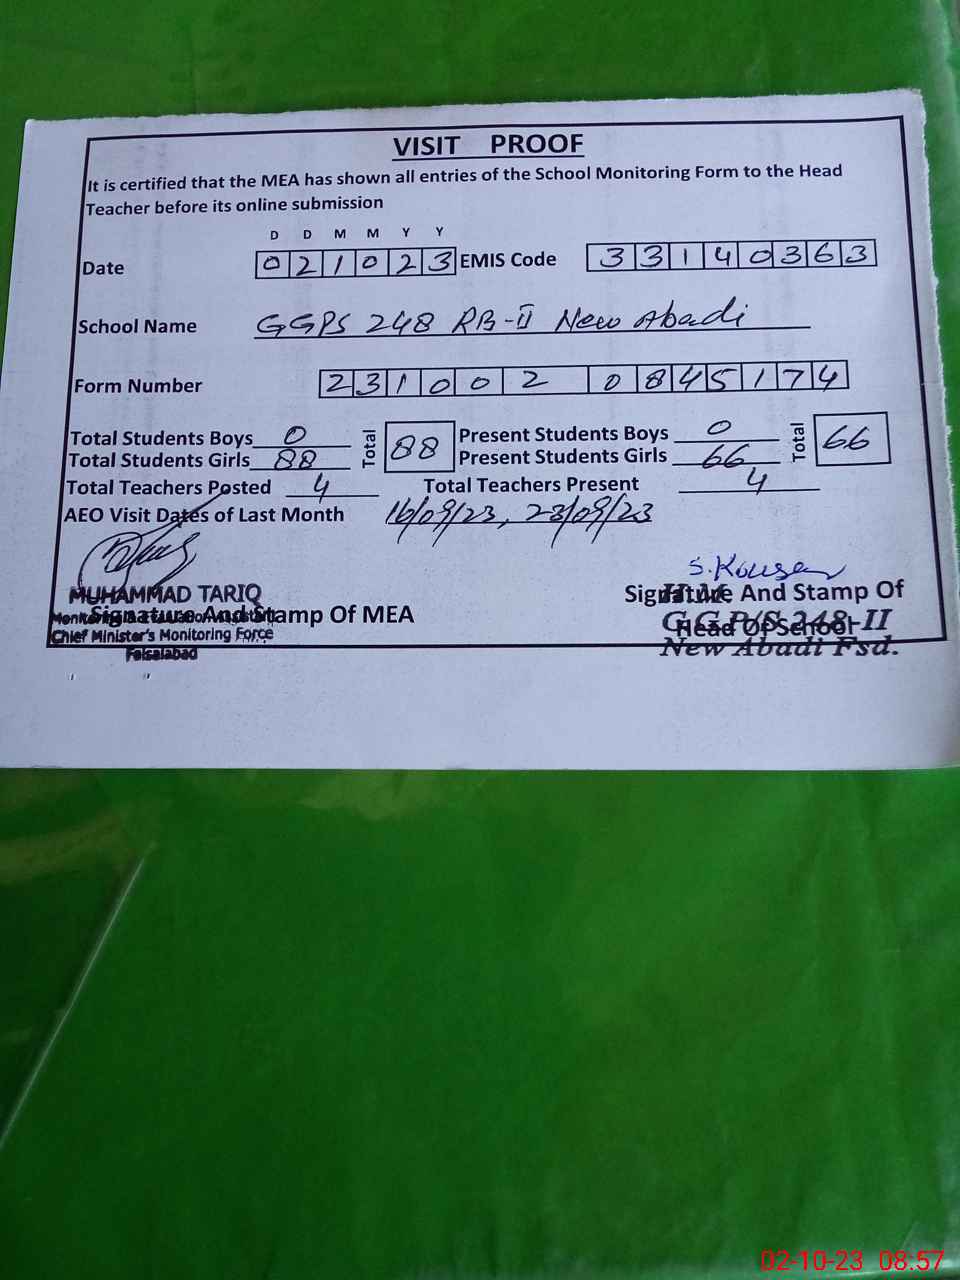 VISIT PROOF
It is certified that the MEA has shown all entries of the School Monitoring Form to the Head
Teacher before its online submission
D D M M Y Y
Date 0 2 1 0 2 3 EMIS Code 3 3 1 4 0 3 6 3
School Name GGPS 248 RB-II New Abadi
Form Number 2 3 1 0 0 2 0 8 4 5 1 7 4
Total Students Boys 0 Total 88 Present Students Boys 0 Total 66
Total Students Girls 88 Present Students Girls 66
Total Teachers Posted 4 Total Teachers Present 4
AEO Visit Dates of Last Month 16/09/23, 23/09/23
S. Kousar
MUHAMMAD TARIQ
Signature And Stamp Of MEA
Monitoring
Chief Minister's Monitoring Force
Faisalabad
Signature And Stamp Of
Head Of School
G.G.P/S 248-II
New Abadi Fsd.
02-10-23 08:57